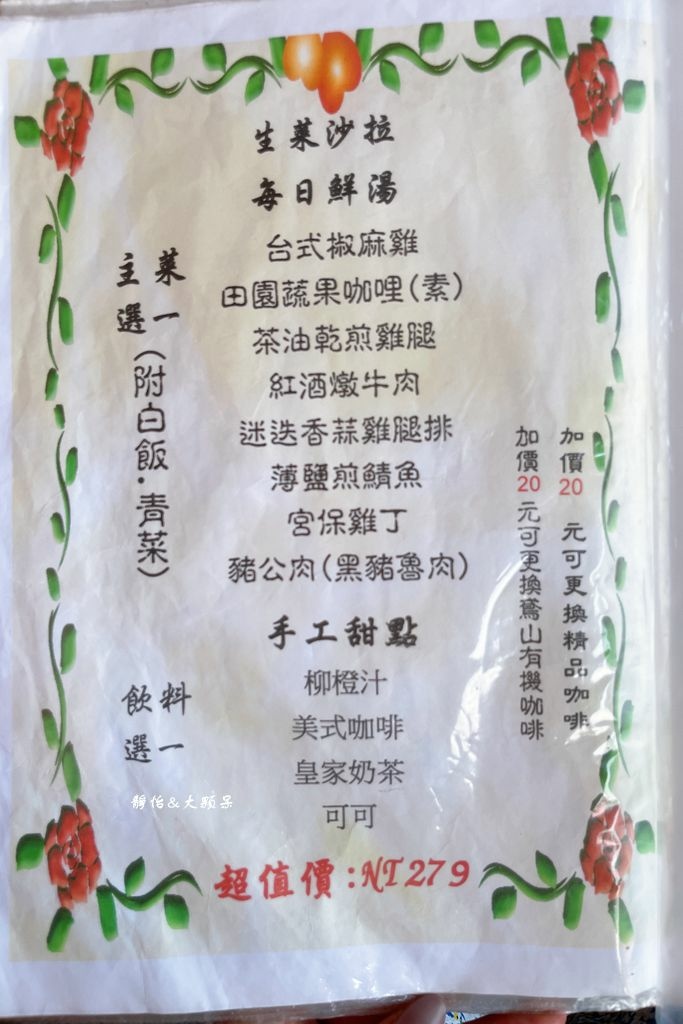 生菜沙拉
每日鮮湯
主菜
選一
(附白飯·青菜)
台式椒麻雞
田園蔬果咖哩(素)
茶油乾煎雞腿
紅酒燉牛肉
迷迭香蒜雞腿排
薄鹽煎鯖魚
宮保雞丁
豬公肉(黑豬魯肉)
手工甜點
飲料
選一
柳橙汁
美式咖啡
皇家奶茶
可可
加價20 元可更換精品咖啡
加價20元可更換鳶山有機咖啡
超值價:NT279
靜怡&大顆呆